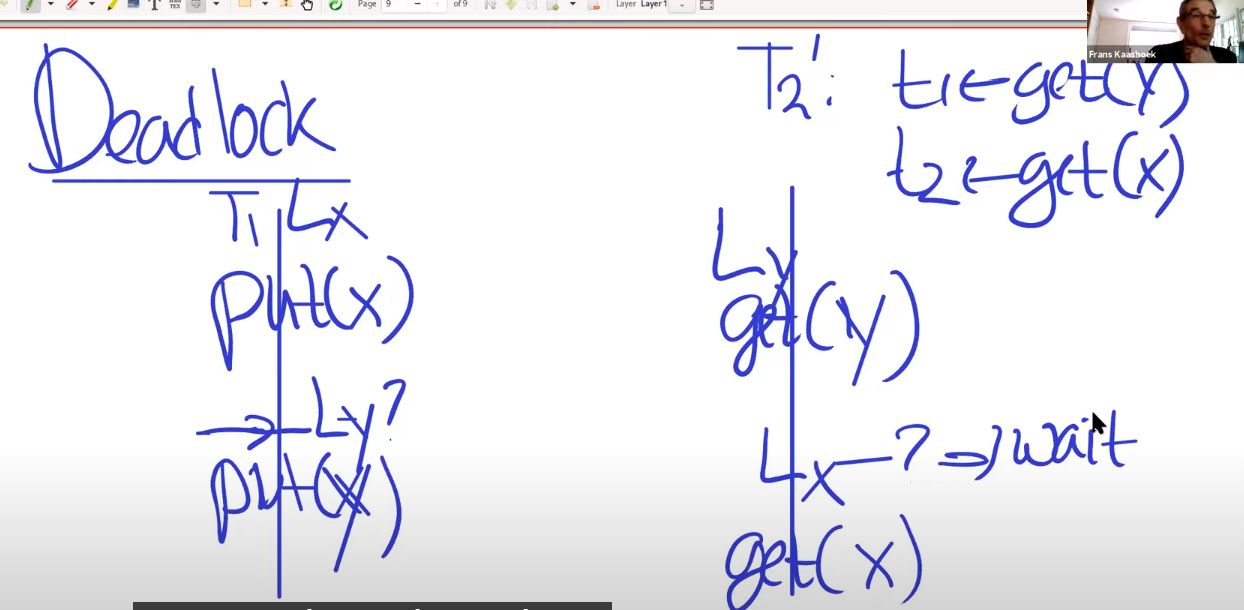 Page 9 of 9 Layer Layer 1
Frans Kaashoek
Deadlock
T1 Lx
put(x)
Ly?
put(y)
T2': t1←get(y)
t2←get(x)
Ly
get(y)
Lx—? ⇒ wait
get(x)